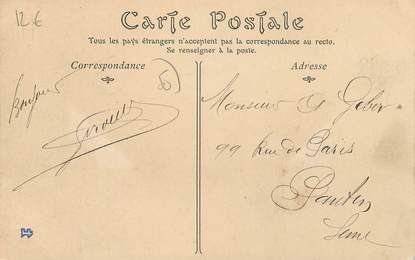 12 €
Carte Postale
Tous les pays étrangers n'acceptent pas la correspondance au recto.
Se renseigner à la poste.
Correspondance
Adresse
Bonjour
Monsieur G Geber
99 Rue de Paris
Pantin
Seine